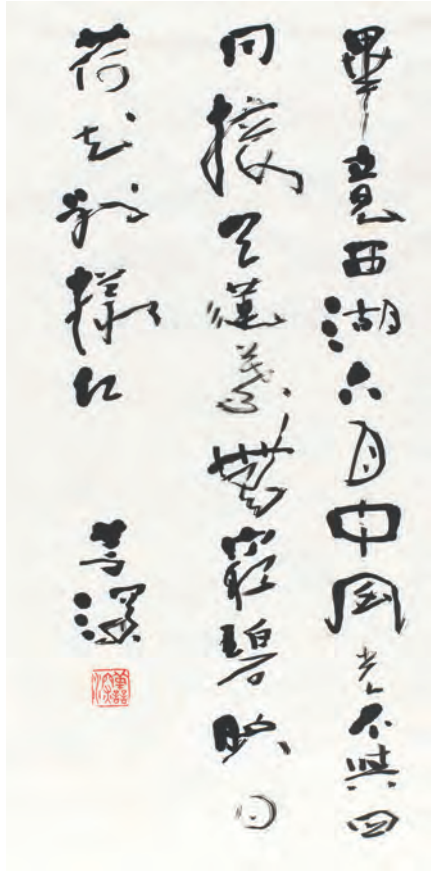 畢竟西湖六月中風光不與四
同接天蓮葉無窮碧映日
荷花別樣紅